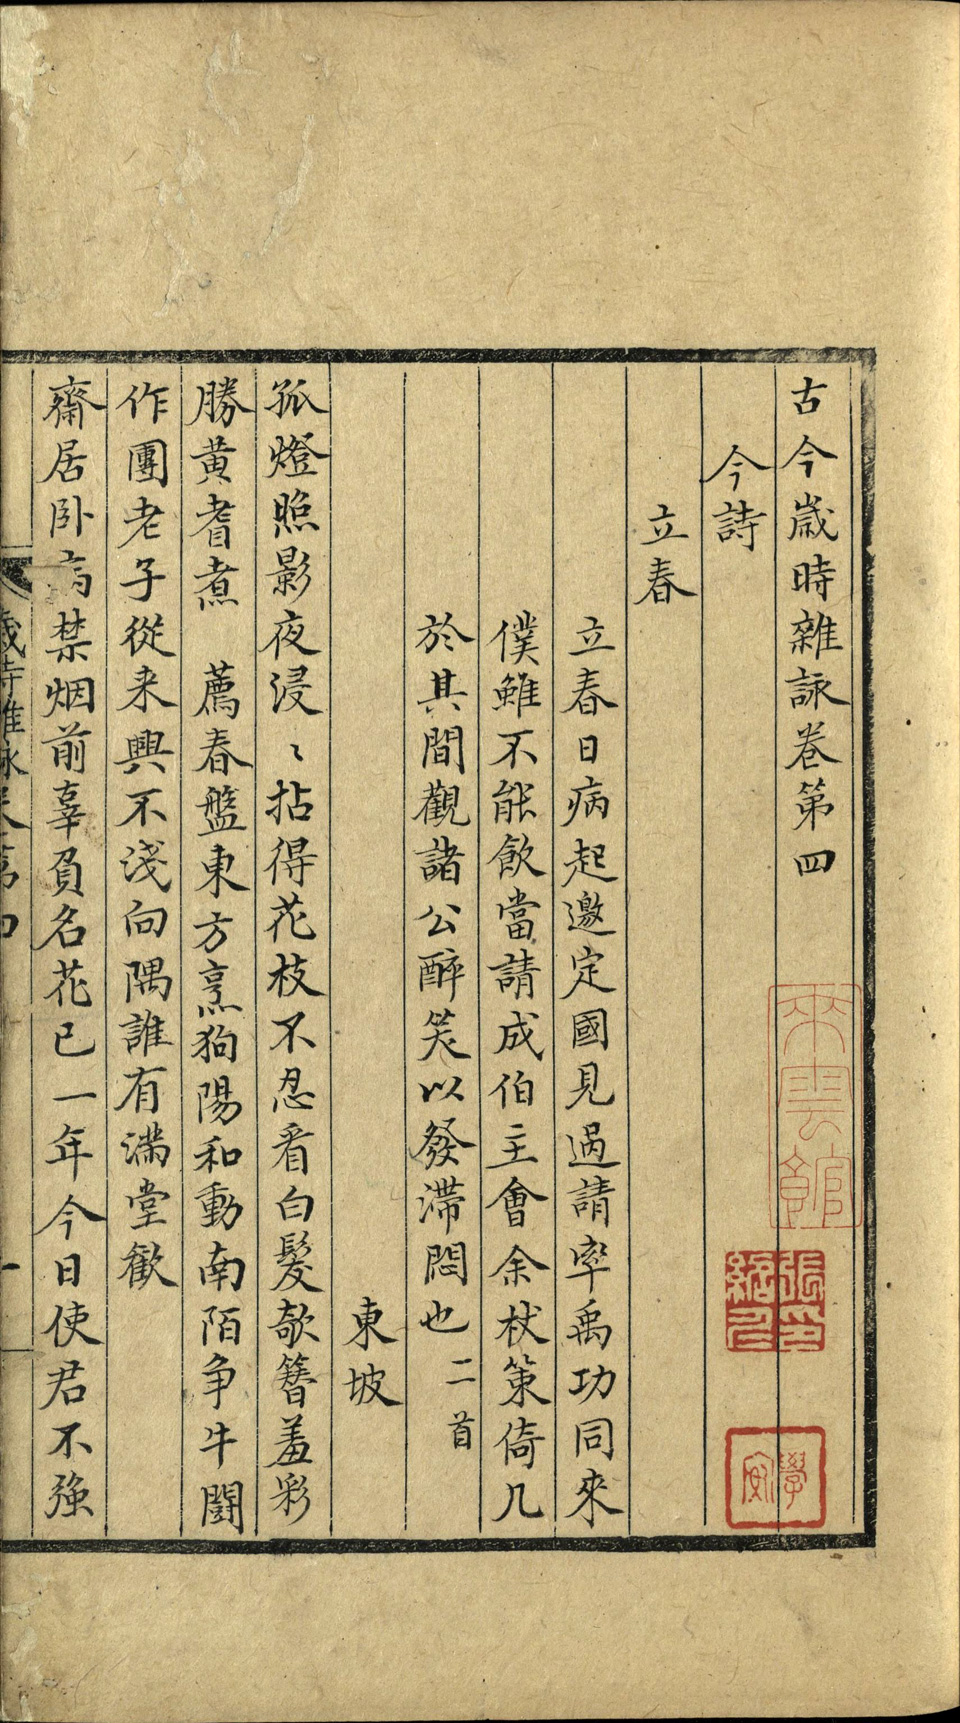 古今歲時雜詠卷第四
今詩
立春
立春日病起邀定國見過請率禹功同來
僕雖不能飲當請成伯主會余杖策倚几
於其間觀諸公醉笑以發滯悶也 二首
東坡
孤燈照影夜浸〻拈得花枝不忍看白髮欹簪羞彩
勝黄耆煮 薦春盤東方烹狗陽和動南陌争牛鬪
作團老子從来興不淺向隅誰有滿堂歡
齋居卧病禁烟前辜負名花已一年今日使君不強
歲時雜詠卷第四
一
来雲館
學安